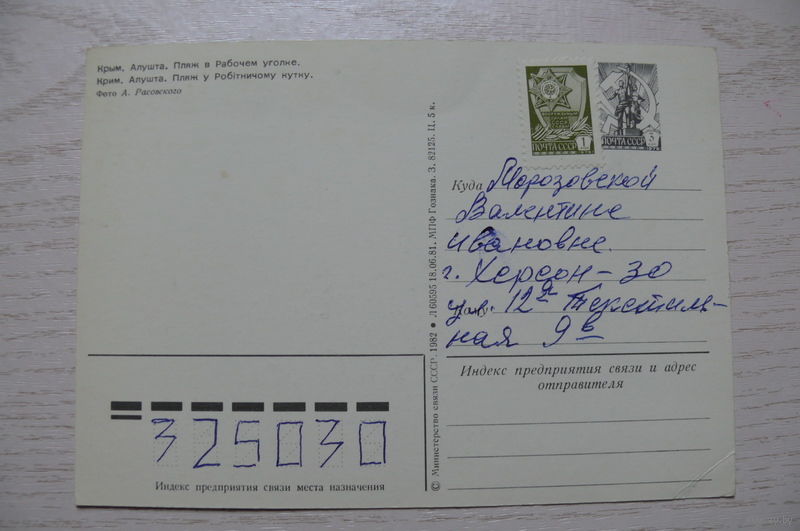 Крым. Алушта. Пляж в Рабочем уголке.
Крим. Алушта. Пляж у Робітничому кутку.
Фото А. Расовского
ПОЧТА СССР 1
ПОЧТА СССР 3
Куда Морозовской
Валентине
Ивановне.
г. Херсон-30
Кому
ул. 12я Текстиль-
ная 9в
Индекс предприятия связи и адрес
отправителя
325030
Индекс предприятия связи места назначения
© Министерство связи СССР. 1982 • Л 60595 18.06.81. МПФ Гознака. З. 82125. Ц. 5 к.